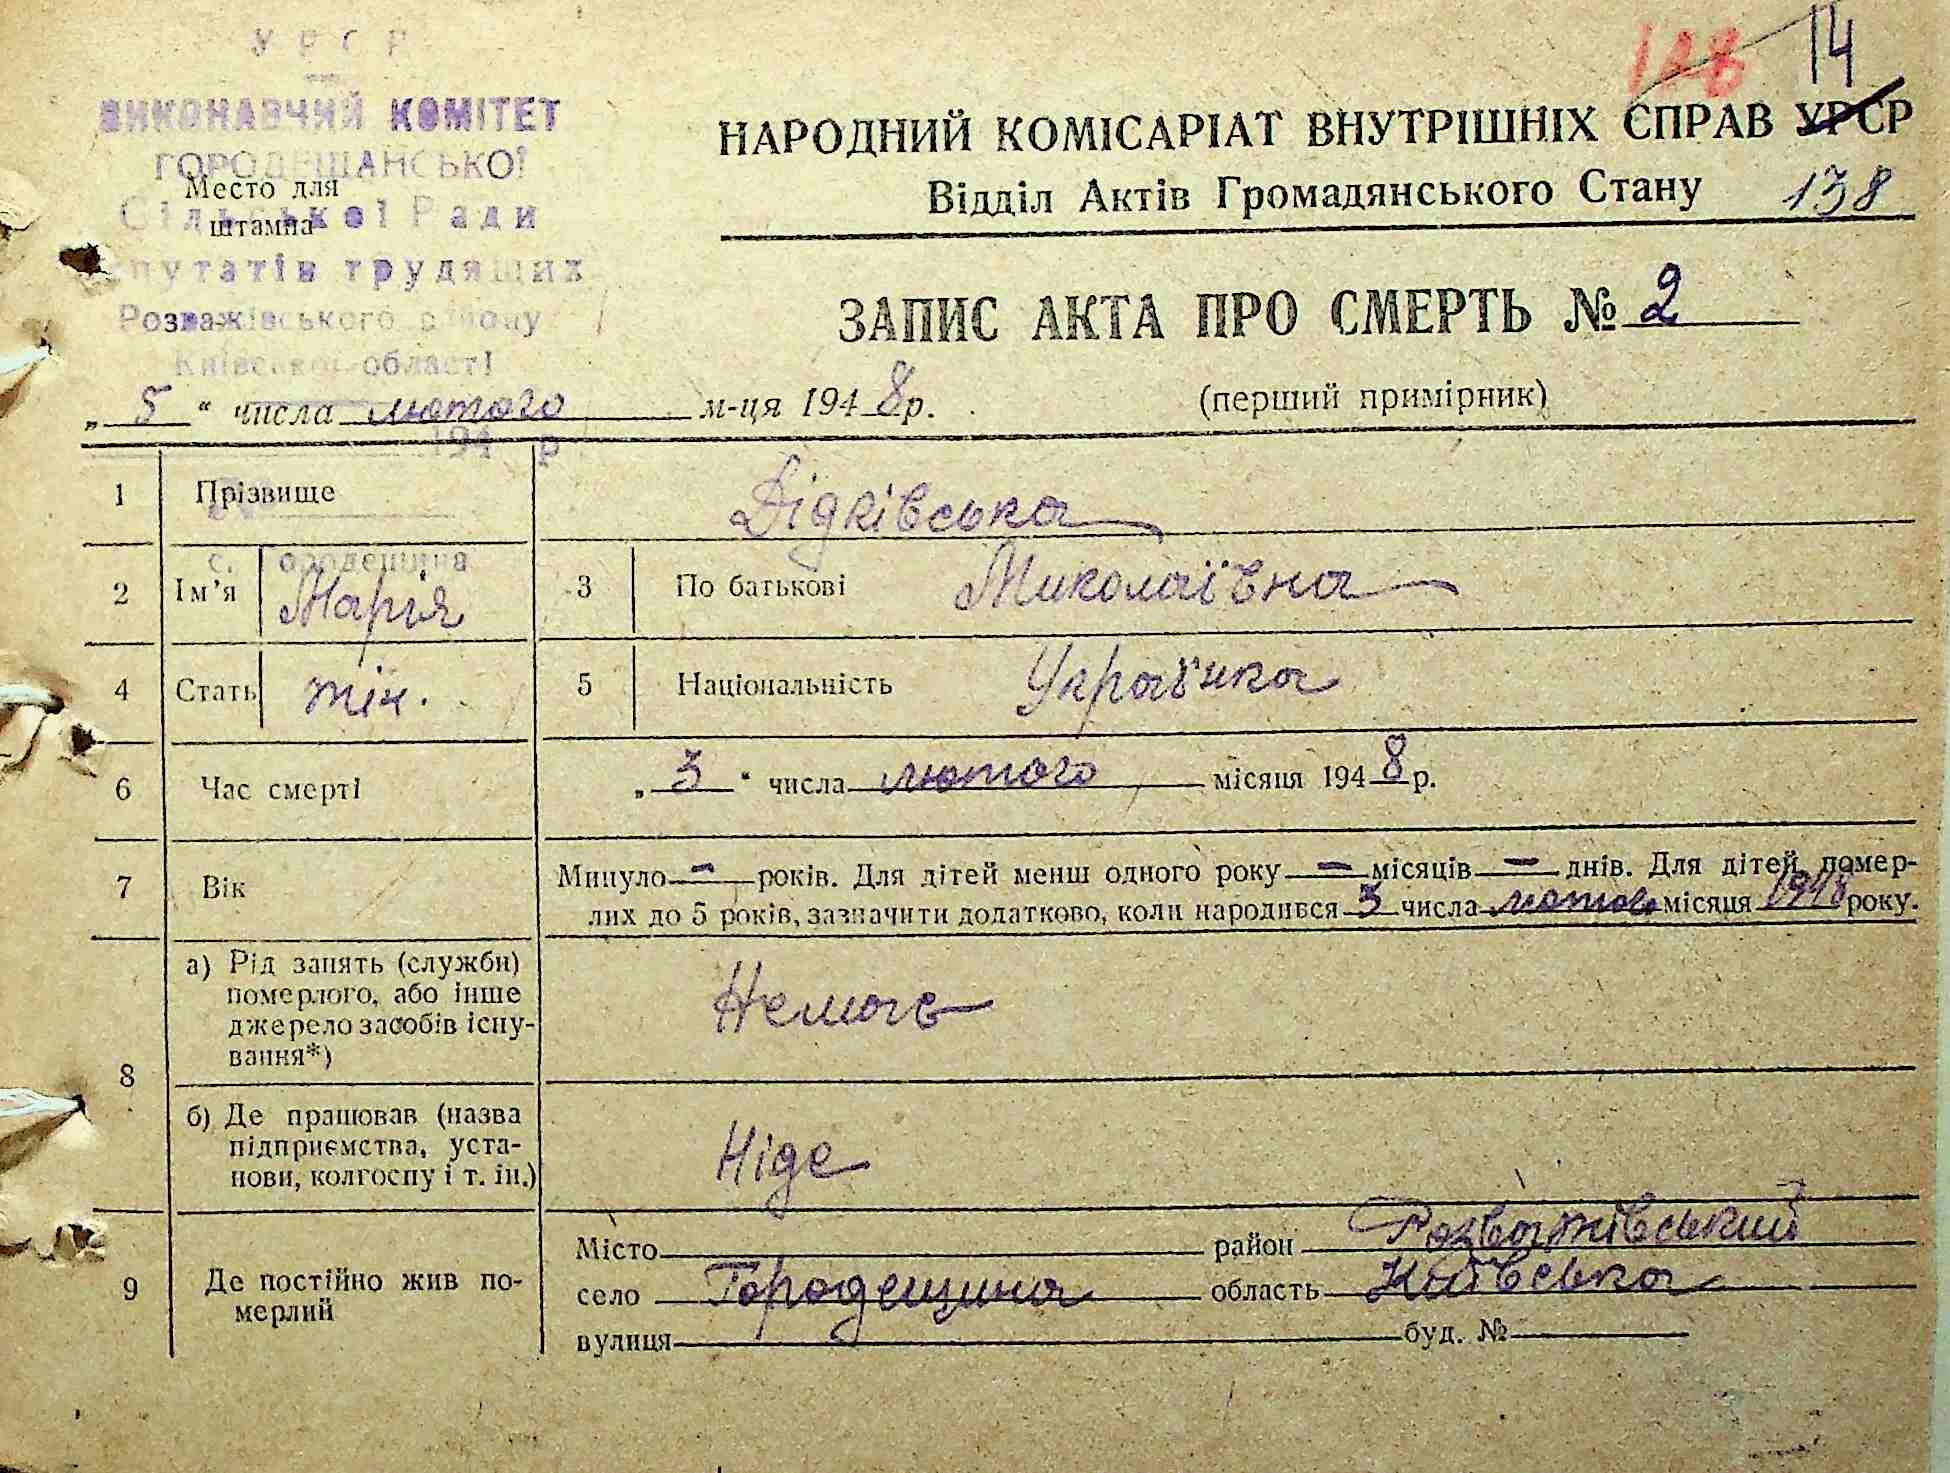 УРСР
ВИКОНАВЧИЙ КОМІТЕТ
ГОРОДЕЩАНСЬКОЇ
Место для
Сільської Ради
штампа
путатів трудящих
Розважівського району
Київської області
194 р
с. Городещина
128 14
НАРОДНИЙ КОМІСАРІАТ ВНУТРІШНІХ СПРАВ УРСР
Відділ Актів Громадянського Стану 138
ЗАПИС АКТА ПРО СМЕРТЬ № 2
„ 5 “ числа лютого м-ця 1948 р. (перший примірник)
1 Прізвище Дідківська
2 Ім’я Марія 3 По батькові Миколаївна
4 Стать жін. 5 Національність Українка
6 Час смерті „ 3 “ числа лютого місяця 1948 р.
7 Вік Минуло — років. Для дітей менш одного року — місяців — днів. Для дітей, помер-
лих до 5 років, зазначити додатково, коли народився 3 числа лютого місяця 1948 року.
8 а) Рід занять (служби)
померлого, або інше
джерело засобів існу-
вання*)
Немає
б) Де працював (назва
підприємства, уста-
нови, колгоспу і т. ін.)
Ніде
9 Де постійно жив по-
мерлий
Місто район Розважівський
село Городещина область Київська
вулиця буд. №